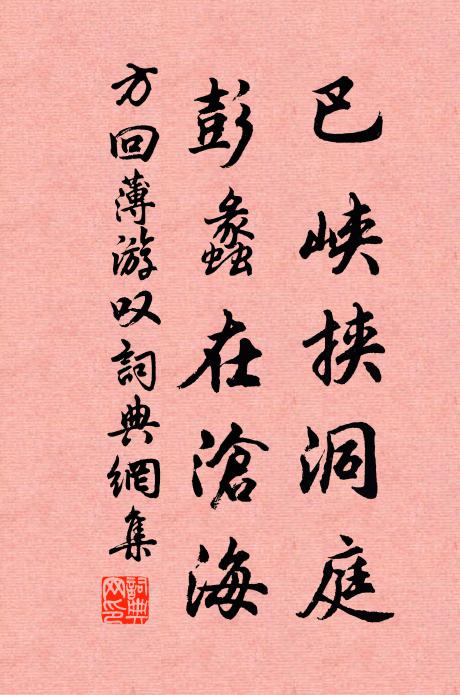 巴峡挟洞庭
彭蠡在滄海
方回薄游叹詞典網集
詞典网印